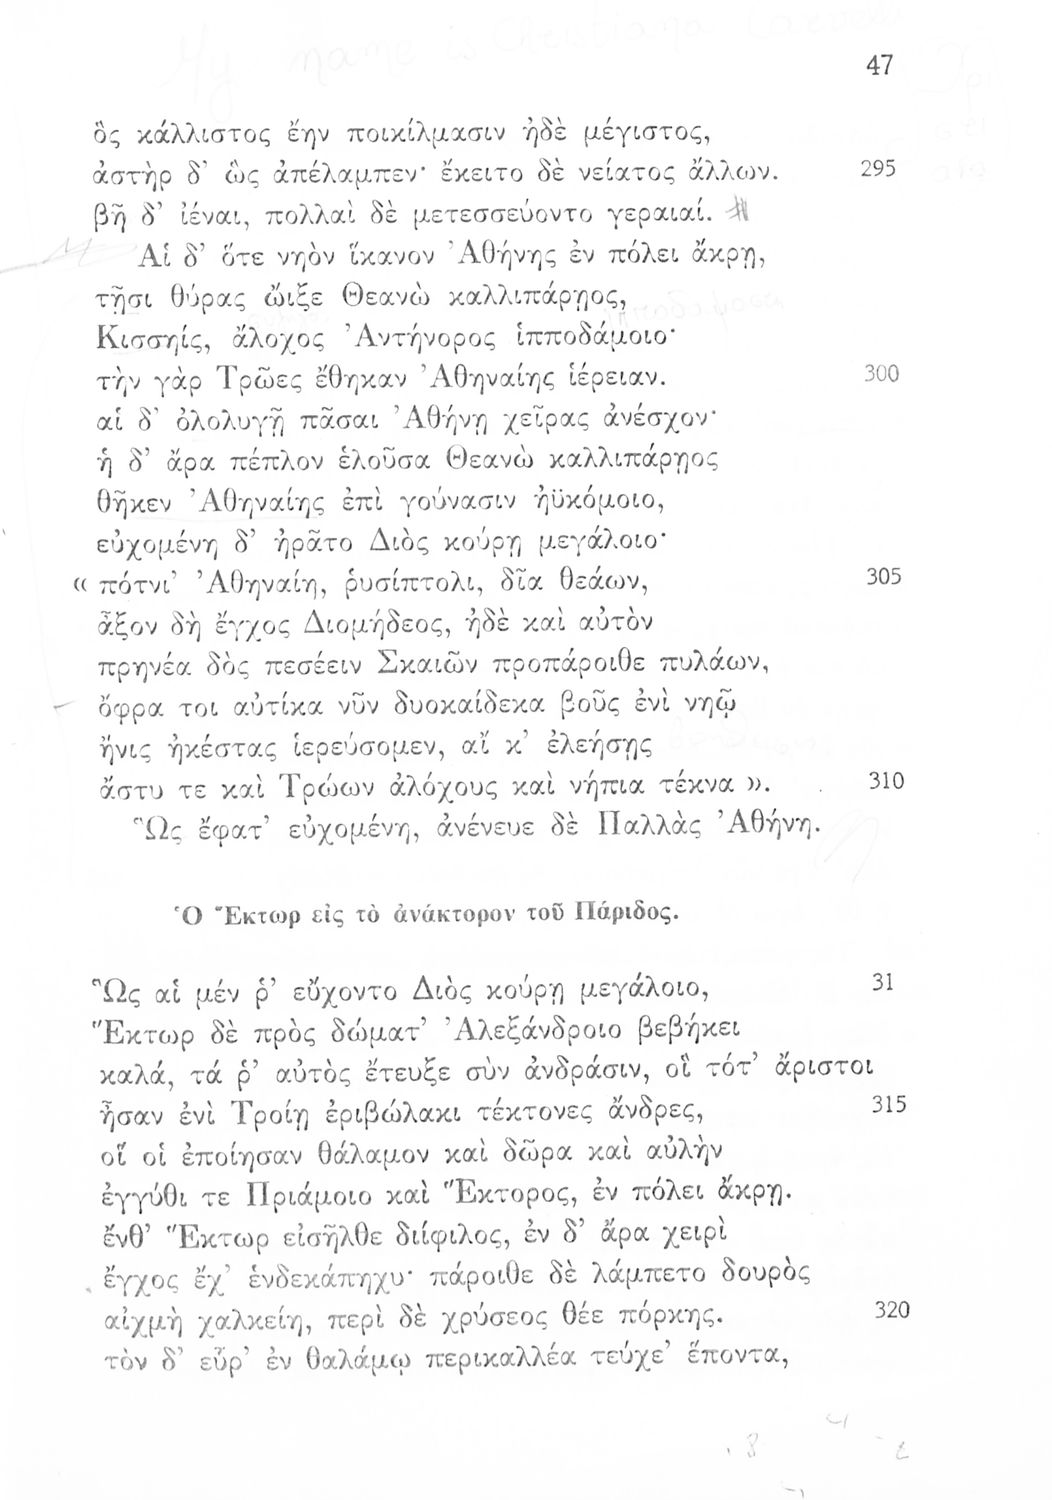 My name is Christiana
47
ὃς κάλλιστος ἔην ποικίλμασιν ἠδὲ μέγιστος,
ἀστὴρ δ' ὣς ἀπέλαμπεν· ἔκειτο δὲ νείατος ἄλλων. 295
βῆ δ' ἰέναι, πολλαὶ δὲ μετεσσεύοντο γεραιαί.
Αἱ δ' ὅτε νηὸν ἵκανον Ἀθήνης ἐν πόλει ἄκρῃ,
τῇσι θύρας ὤιξε Θεανὼ καλλιπάρῃος,
Κισσηίς, ἄλοχος Ἀντήνορος ἱπποδάμοιο·
τὴν γὰρ Τρῶες ἔθηκαν Ἀθηναίης ἱέρειαν. 300
αἱ δ' ὀλολυγῇ πᾶσαι Ἀθήνῃ χεῖρας ἀνέσχον·
ἡ δ' ἄρα πέπλον ἑλοῦσα Θεανὼ καλλιπάρῃος
θῆκεν Ἀθηναίης ἐπὶ γούνασιν ἠϋκόμοιο,
εὐχομένη δ' ἠρᾶτο Διὸς κούρῃ μεγάλοιο·
« πότνι' Ἀθηναίη, ῥυσίπτολι, δῖα θεάων, 305
ἆξον δὴ ἔγχος Διομήδεος, ἠδὲ καὶ αὐτὸν
πρηνέα δὸς πεσέειν Σκαιῶν προπάροιθε πυλάων,
ὄφρα τοι αὐτίκα νῦν δυοκαίδεκα βοῦς ἐνὶ νηῷ
ἤνις ἠκέστας ἱερεύσομεν, αἴ κ' ἐλεήσῃς
ἄστυ τε καὶ Τρώων ἀλόχους καὶ νήπια τέκνα ». 310
Ὣς ἔφατ' εὐχομένη, ἀνένευε δὲ Παλλὰς Ἀθήνη.
Ὁ Ἕκτωρ εἰς τὸ ἀνάκτορον τοῦ Πάριδος.
Ὣς αἱ μέν ῥ' εὔχοντο Διὸς κούρῃ μεγάλοιο, 31
Ἕκτωρ δὲ πρὸς δώματ' Ἀλεξάνδροιο βεβήκει
καλά, τά ῥ' αὐτὸς ἔτευξε σὺν ἀνδράσιν, οἳ τότ' ἄριστοι
ἦσαν ἐνὶ Τροίῃ ἐριβώλακι τέκτονες ἄνδρες, 315
οἵ οἱ ἐποίησαν θάλαμον καὶ δῶρα καὶ αὐλὴν
ἐγγύθι τε Πριάμοιο καὶ Ἕκτορος, ἐν πόλει ἄκρῃ.
ἔνθ' Ἕκτωρ εἰσῆλθε διίφιλος, ἐν δ' ἄρα χειρὶ
ἔγχος ἔχ' ἑνδεκάπηχυ· πάροιθε δὲ λάμπετο δουρὸς
αἰχμὴ χαλκείη, περὶ δὲ χρύσεος θέε πόρκης. 320
τὸν δ' εὗρ' ἐν θαλάμῳ περικαλλέα τεύχε' ἕποντα,